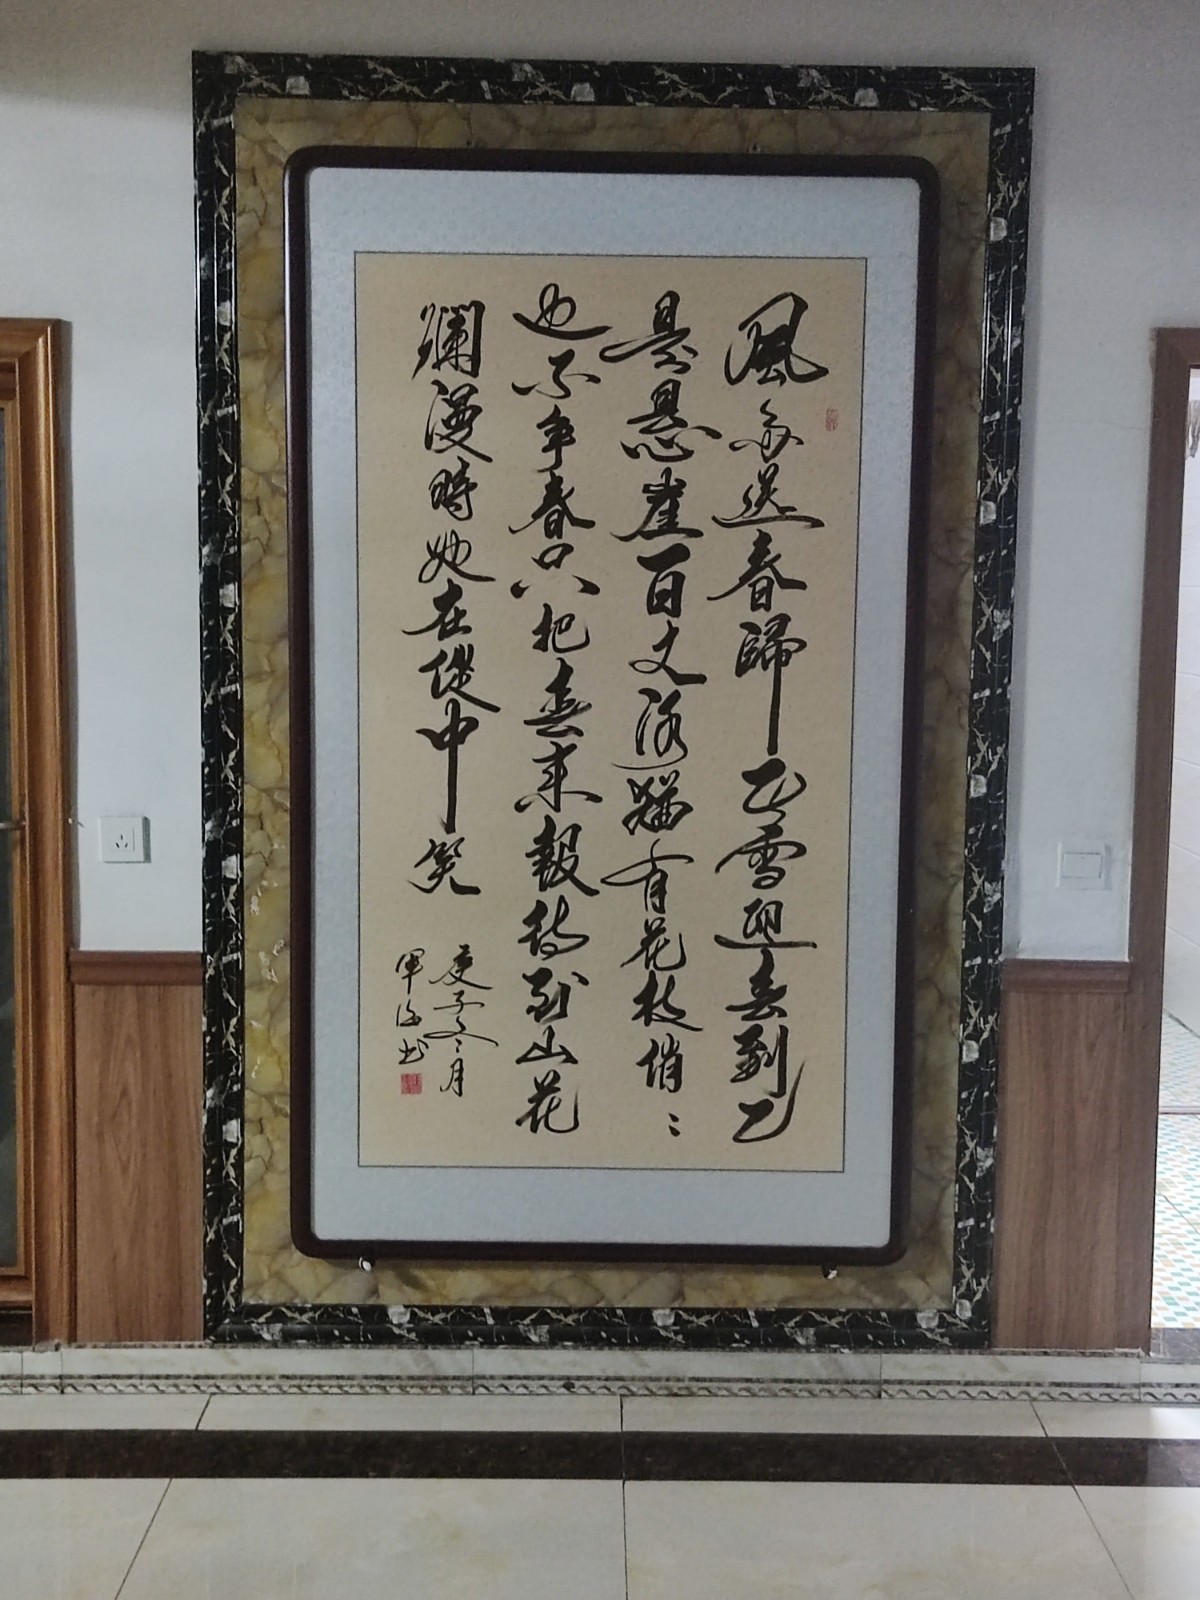 風雨送春歸飛雪迎春到已
是悬崖百丈冰猶有花枝俏〻
也不争春只把春来報待到山花
爛漫時她在從中笑
庚子冬月
軍海书